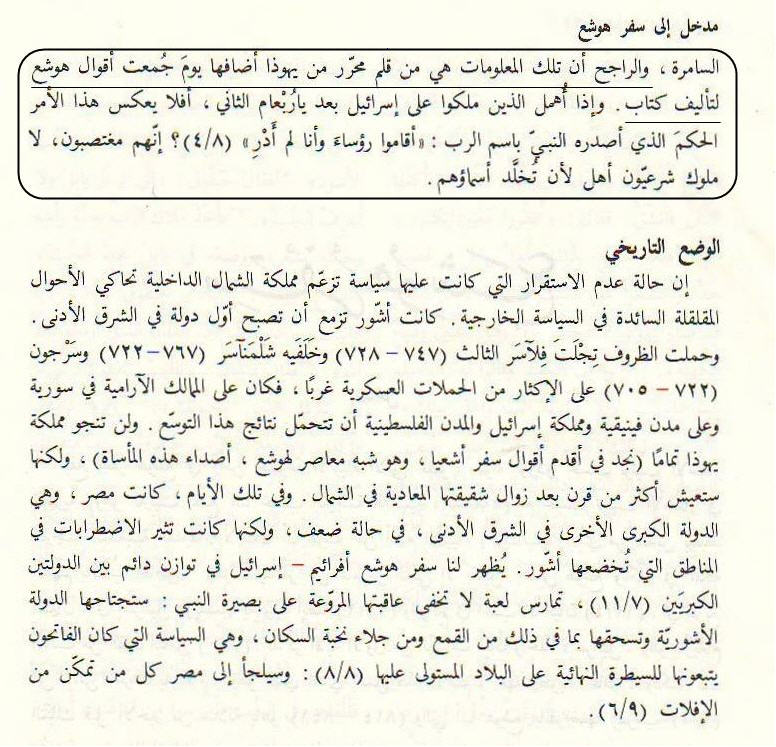 مدخل إلى سفر هوشع
السامرة ، والراجح أن تلك المعلومات هي من قلم محرّر من يهوذا أضافها يومَ جُمعت أقوال هوشع
لتأليف كتاب . وإذا أُهمل الذين ملكوا على إسرائيل بعد ياربْعام الثاني ، أفلا يعكس هذا الأمر
الحكمَ الذي أصدره النبيّ باسم الرب : «أقاموا رؤساءَ وأنا لم أَدْرِ» (٤/٨)؟ إنّهم مغتصبون، لا
ملوك شرعيّون أهل لأن تُخلَّد أسماؤهم.
الوضع التاريخي
إن حالة عدم الاستقرار التي كانت عليها سياسة تزعّم مملكة الشمال الداخلية تحاكي الأحوال
المقلقلة السائدة في السياسة الخارجية . كانت أشّور تزمع أن تصبح أوّل دولة في الشرق الأدنى.
وحملت الظروف تِجْلَتَ فِلآسَر الثالث (٧٤٧ – ٧٢٨) وخَلَفَيه شَلْمَنآسَر (٧٦٧–٧٢٢) وسَرْجون
(٧٢٢ – ٧٠٥) على الإكثار من الحملات العسكرية غربًا ، فكان على الممالك الآرامية في سورية
وعلى مدن فينيقية ومملكة إسرائيل والمدن الفلسطينية أن تتحمّل نتائج هذا التوسّع . ولن تنجو مملكة
يهوذا تمامًا (نجد في أقدم أقوال سفر أشعيا ، وهو شبه معاصر لهوشع ، أصداء هذه المأساة) ، ولكنها
ستعيش أكثر من قرن بعد زوال شقيقتها المعادية في الشمال. وفي تلك الأيام ، كانت مصر ، وهي
الدولة الكبرى الأخرى في الشرق الأدنى ، في حالة ضعف ، ولكنها كانت تثير الاضطرابات في
المناطق التي تُخضعها أشّور. يُظهر لنا سفر هوشع أفرائيم – إسرائيل في توازن دائم بين الدولتين
الكبريَين (١١/٧) ، تمارس لعبة لا تخفى عاقبتها المروّعة على بصيرة النبي : ستجتاحها الدولة
الأشوريّة وتسحقها بما في ذلك من القمع ومن جلاء نخبة السكان ، وهي السياسة التي كان الفاتحون
يتبعونها للسيطرة النهائية على البلاد المستولى عليها (٨/٨) : وسيلجأ إلى مصر كل من تمكّن من
الإفلات (٦/٩).